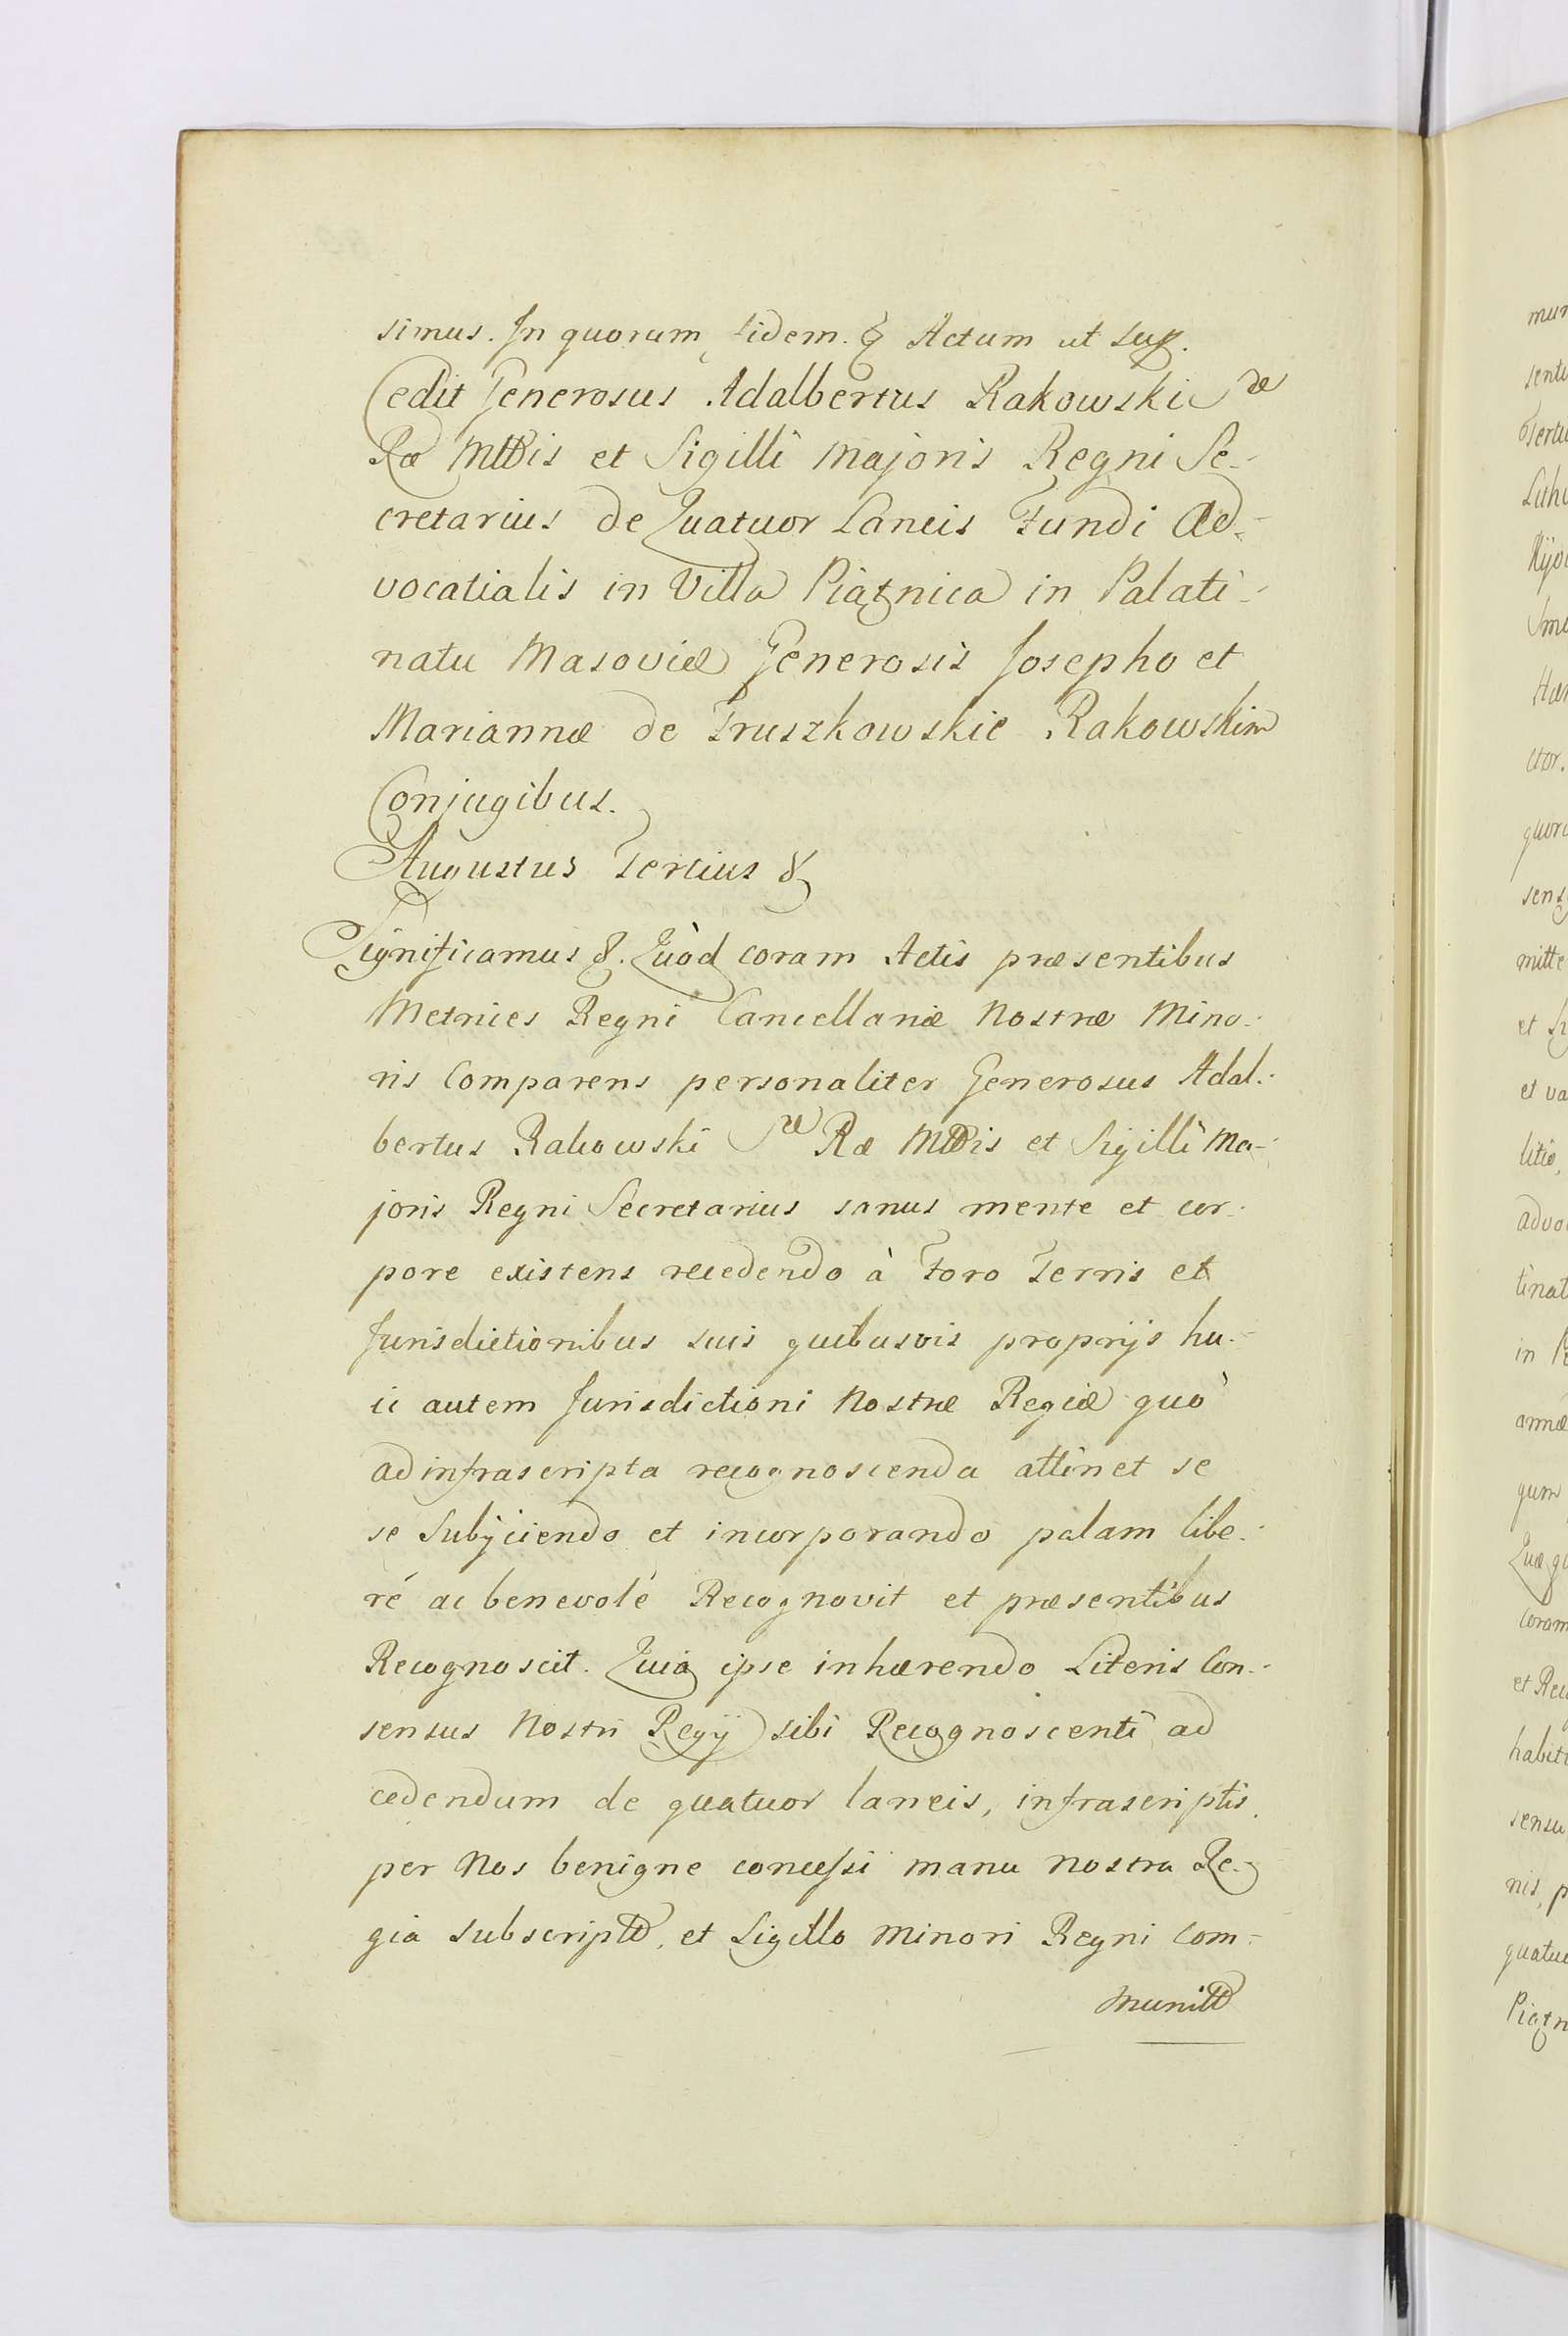 simus. In quorum fidem. & Actum ut sup.
Cedit Generosus Adalbertus Rakowski Sae
Rae Mttis et Sigilli Majoris Regni Se-
cretarius de Quatuor Laneis Fundi Ad-
vocatialis in Villa Piątnica in Palati-
natu Masoviæ Generosis Josepho et
Mariannæ de Truszkowskie Rakowskim
Conjugibus.
Augustus Tertius &
Significamus &. Quòd coram Actis præsentibus
Metrices Regni Cancellariæ Nostræ Mino-
ris Comparens personaliter Generosus Adal-
bertus Rakowski Sae Rae Mttis et Sigilli Ma-
joris Regni Secretarius sanus mente et cor-
pore existens recedendo à Foro Terris et
Jurisdictionibus suis quibusvis proprijs hu-
ic autem Jurisdictioni Nostræ Regiæ quò
ad infrascripta recognoscenda attinet se
se Subijciendo et incorporando palam libe-
ré ac benevolé Recognovit et præsentibus
Recognoscit. Quia ipse inhærendo Literis Con-
sensus Nostri Regij sibi Recognoscenti ad
cedendum de quatuor laneis, infrascriptis
per Nos benigne concessi manu nostra Re-
gia subscriptt, et Sigillo Minori Regni com-
munitt
mun
senti
Tertiu
Lithu
Kijo
Smo
Hær
ctor.
quoru
sens
mitte
et Si
et va
litio,
advo
tinat
in P
annæ
gum
Quæ qu
coram
et Rec
habit
sensu
nis, p
quatuo
Piątn